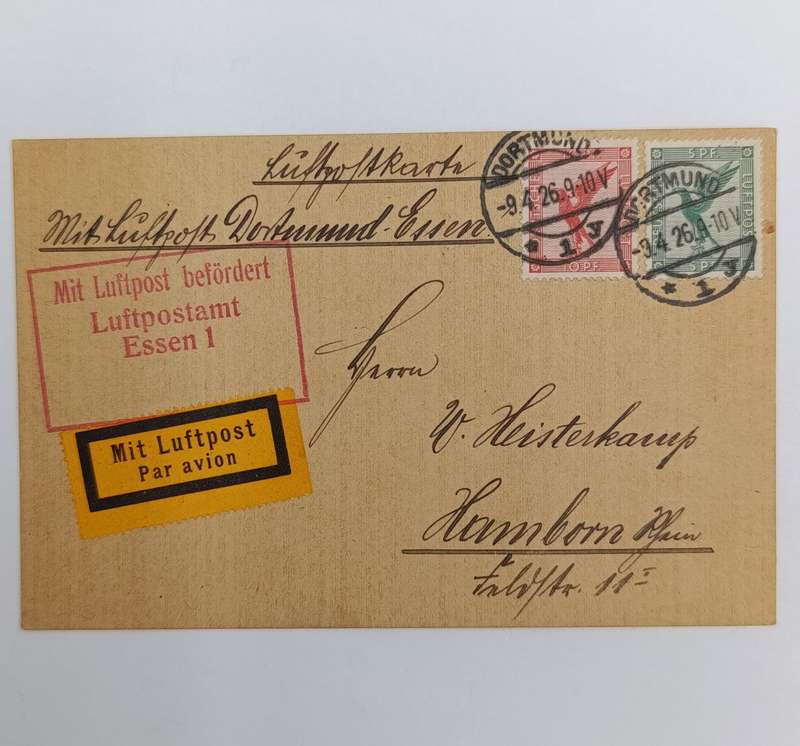 Luftpostkarte
Mit Luftpost Dortmund-Essen
DORTMUND
-9.4.26.9-10V
* 1 y
10 PF
5 PF.
LUFTPOST
5 PF
DORTMUND
-9.4.26.9-10V
* 1 y
Mit Luftpost befördert
Luftpostamt
Essen 1
Mit Luftpost
Par avion
Herrn
W. Heisterkamp
Hamborn Rhein
Feldstr. 11 I